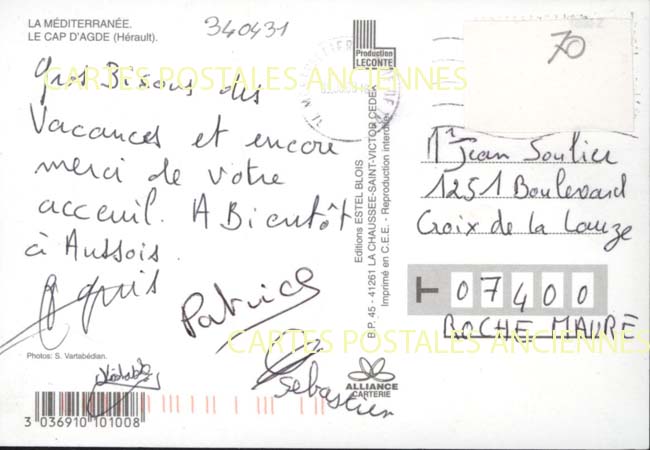 LA MÉDITERRANÉE.
LE CAP D'AGDE (Hérault).
340431
Production
LECONTE
70
CARTES POSTALES ANCIENNES
Gros Bisous des
Vacances et encore
merci de votre
acceuil. A Bientôt
à Aussois.
Patrice
Sebastien
Photos: S. Vartabédian.
3 036910 101008
Editions ESTEL BLOIS
B.P. 45 - 41261 LA CHAUSSEE-SAINT-VICTOR CEDEX
Imprimé en C.E.E. - Reproduction interdite
ALLIANCE
CARTERIE
Mr Jean Soulier
1251 Boulevard
Croix de la Lauze
07400
ROCHE MAURE
CARTES POSTALES ANCIENNES